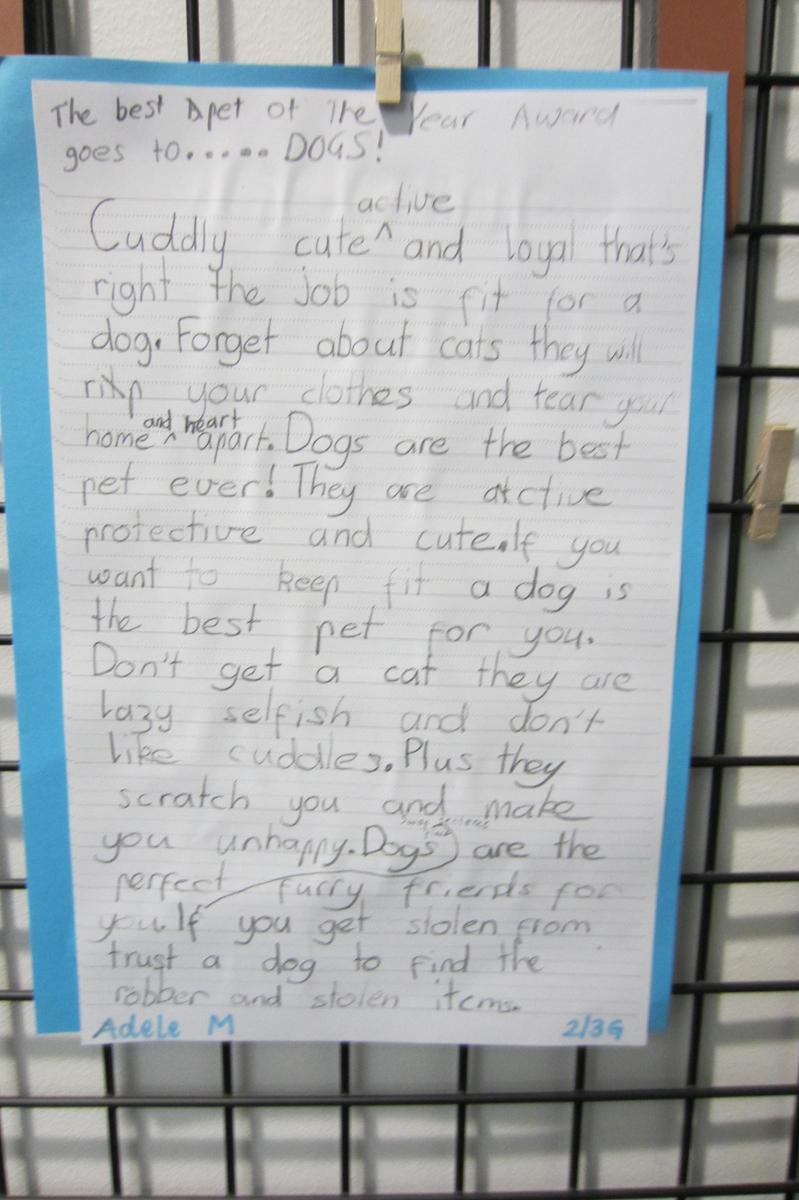 The best pet of The Year Award
goes to..... DOGS!
active
Cuddly cute ^ and loyal that's
right the job is fit for a
dog. Forget about cats they will
rip your clothes and tear your
and heart
home ^ apart. Dogs are the best
pet ever! They are active
protective and cute. If you
want to keep fit a dog is
the best pet for you.
Don't get a cat they are
lazy selfish and don't
like cuddles. Plus they
scratch you and make
you unhappy. Dogs are the
perfect furry friends for
you. If you get stolen from
trust a dog to find the
robber and stolen items.
Adele M 2/3G